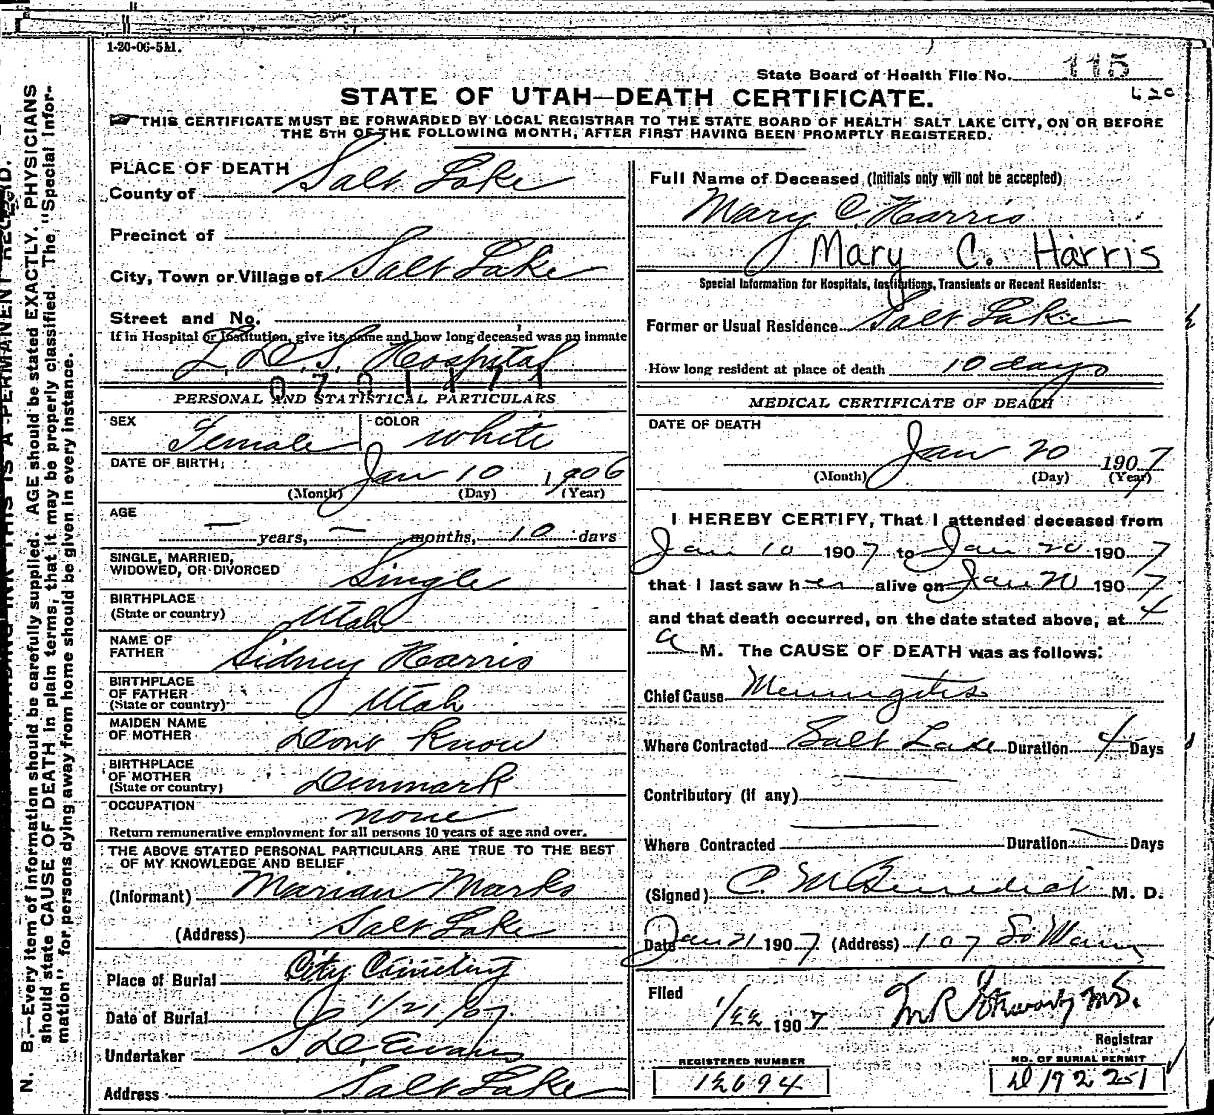 1-20-06-5M.
State Board of Health File No. 115
STATE OF UTAH—DEATH CERTIFICATE.
THIS CERTIFICATE MUST BE FORWARDED BY LOCAL REGISTRAR TO THE STATE BOARD OF HEALTH SALT LAKE CITY, ON OR BEFORE
THE 5TH OF THE FOLLOWING MONTH, AFTER FIRST HAVING BEEN PROMPTLY REGISTERED.
PLACE OF DEATH
County of Salt Lake
Precinct of
City, Town or Village of Salt Lake
Street and No.
If in Hospital or Institution, give its name and how long deceased was an inmate
L. D. S. Hospital
PERSONAL AND STATISTICAL PARTICULARS
SEX Female COLOR White
DATE OF BIRTH: Jan 10 1906
(Month) (Day) (Year)
AGE
— years, — months, 10 days
SINGLE, MARRIED,
WIDOWED, OR DIVORCED Single
BIRTHPLACE
(State or country) Utah
NAME OF
FATHER Sidney Harris
BIRTHPLACE
OF FATHER
(State or country) Utah
MAIDEN NAME
OF MOTHER Dont Know
BIRTHPLACE
OF MOTHER
(State or country) Denmark
OCCUPATION none
Return remunerative employment for all persons 10 years of age and over.
THE ABOVE STATED PERSONAL PARTICULARS ARE TRUE TO THE BEST
OF MY KNOWLEDGE AND BELIEF
(Informant) Marian Marks
(Address) Salt Lake
Place of Burial City Cemetery
Date of Burial 1/21/07
Undertaker S D Evans
Address Salt Lake
Full Name of Deceased (Initials only will not be accepted)
Mary C. Harris
Mary C. Harris
Special Information for Hospitals, Institutions, Transients or Recent Residents:
Former or Usual Residence Salt Lake
How long resident at place of death 10 days
MEDICAL CERTIFICATE OF DEATH
DATE OF DEATH
Jan 20 1907
(Month) (Day) (Year)
I HEREBY CERTIFY, That I attended deceased from
Jan 10 1907 to Jan 20 1907
that I last saw her alive on Jan 20 1907
and that death occurred, on the date stated above, at 4
a M. The CAUSE OF DEATH was as follows:
Chief Cause Meningitis
Where Contracted Salt Lake Duration 4 Days
Contributory (if any)
Where Contracted Duration Days
(Signed) C. M. Benedict M. D.
Date Jan 21 1907 (Address) 107 So Main
Filed
1/22 1907 M.D.
Registrar
REGISTERED NUMBER
12694
NO. OF BURIAL PERMIT
N. B.—Every item of information should be carefully supplied. AGE should be stated EXACTLY. PHYSICIANS
should state CAUSE OF DEATH in plain terms, that it may be properly classified. The "Special Infor-
mation" for persons dying away from home should be given in every instance.